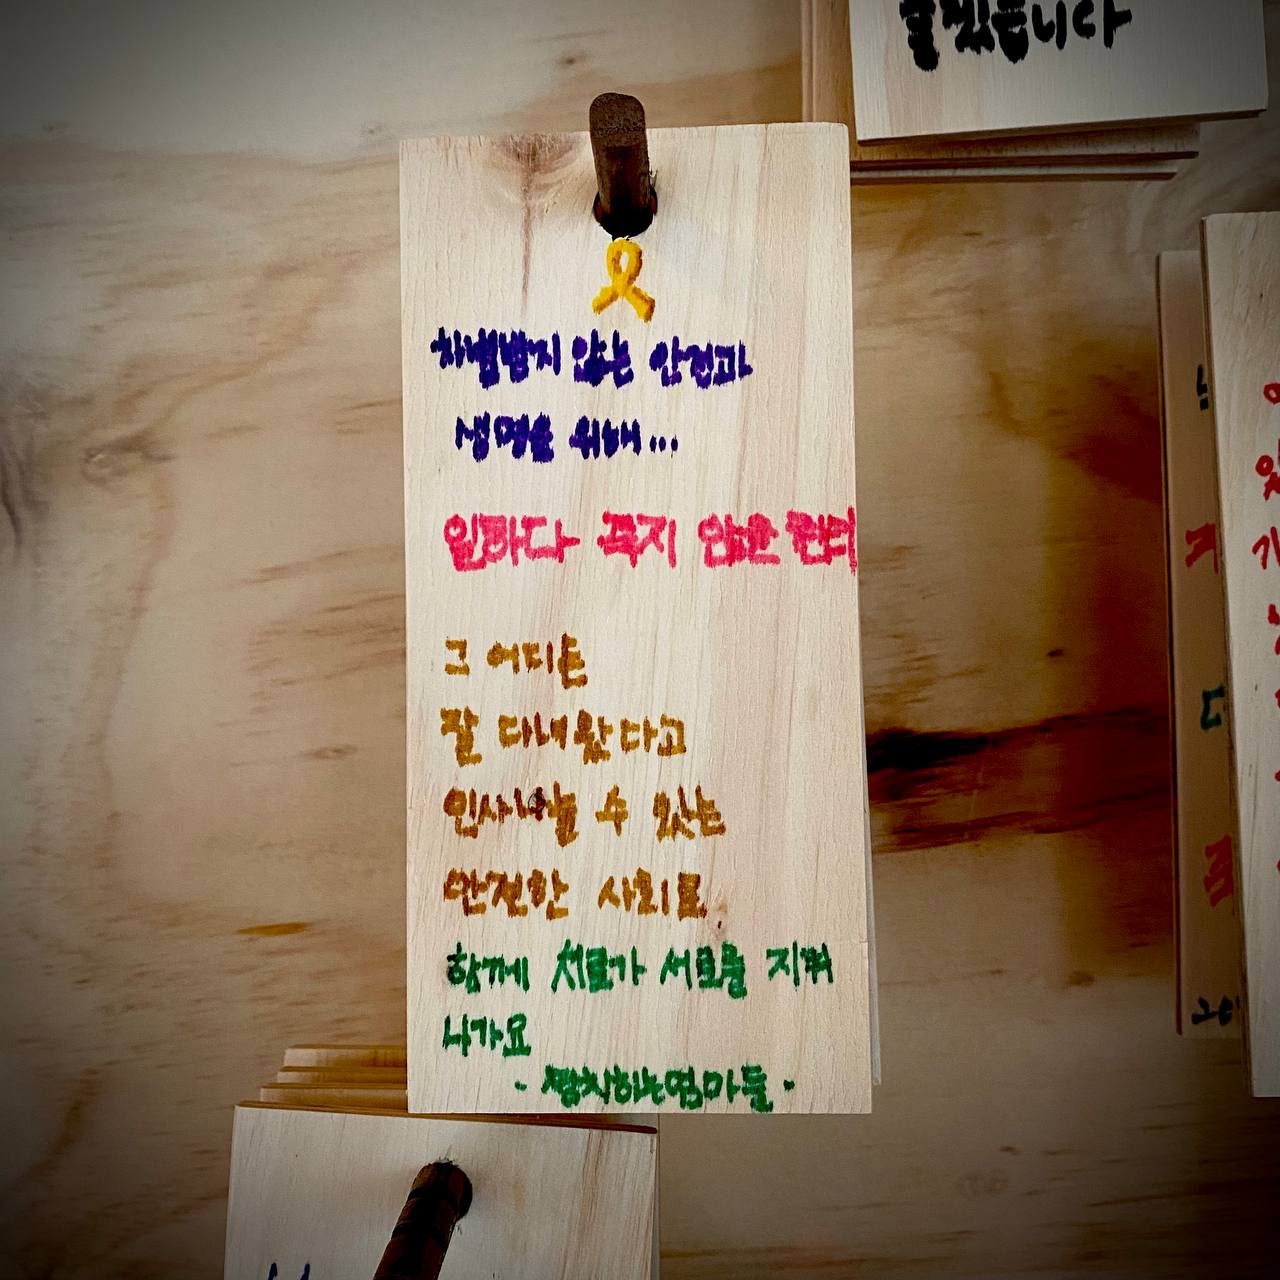 차별받지 않는 안전과
생명을 위해...
일하다 죽지 않을 권리
그 어디든
잘 다녀왔다고
인사나눌 수 있는
안전한 사회로
함께 서로가 서로를 지켜
나가요
- 정치하는엄마들 -